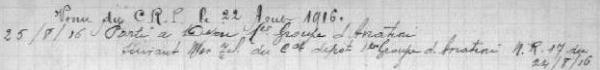 Venu du C.R.P. le 22 Aout 1916.
25/8/16 Parti a Dijon 1er Groupe d'Aviation
Suivant Mes Tel. du Cel dépot 1er Groupe d'Aviation N.R. 17 du
24/8/16